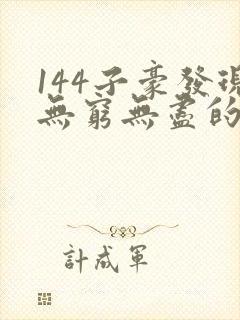 144子豪發現
無窮無盡的
計成軍